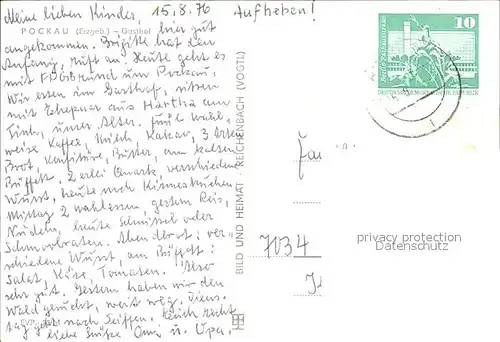 Meine lieben Kinder, 15.8.76 Aufheben!
POCKAU (Erzgeb.) – Gasthof
hier gut
angekommen. Brigitte hat den
Anfang, ruft an. Heute geht es
mit rund um Pockau.
Wir essen im Gasthof, sitzen
mit Ehepaar aus Hartha am
Tisch, unser Alter. früh wahl-
weise Kaffee, Milch, Kakao, 3 Arten
Brot, Konfitüre, Butter, am kalten
Büffett. 2 erlei Quark, verschiedene
Wurst, heute noch
Mittag 2 wahlessen, gestern Reis,
Nudeln, heute Schnitzel oder
Schmorbraten. Abendbrot: ver-
schiedene Wurst, am Büffett:
Salat, Käse, Tomaten. Also
sehr gut. Gestern haben wir den
Wald gesucht, weit weg. Diens-
tag geht's nach Seiffen. Euch recht
liebe Grüße Omi u. Opa.
BILD UND HEIMAT · REICHENBACH (VOGTL)
10
7034
privacy protection
Datenschutz